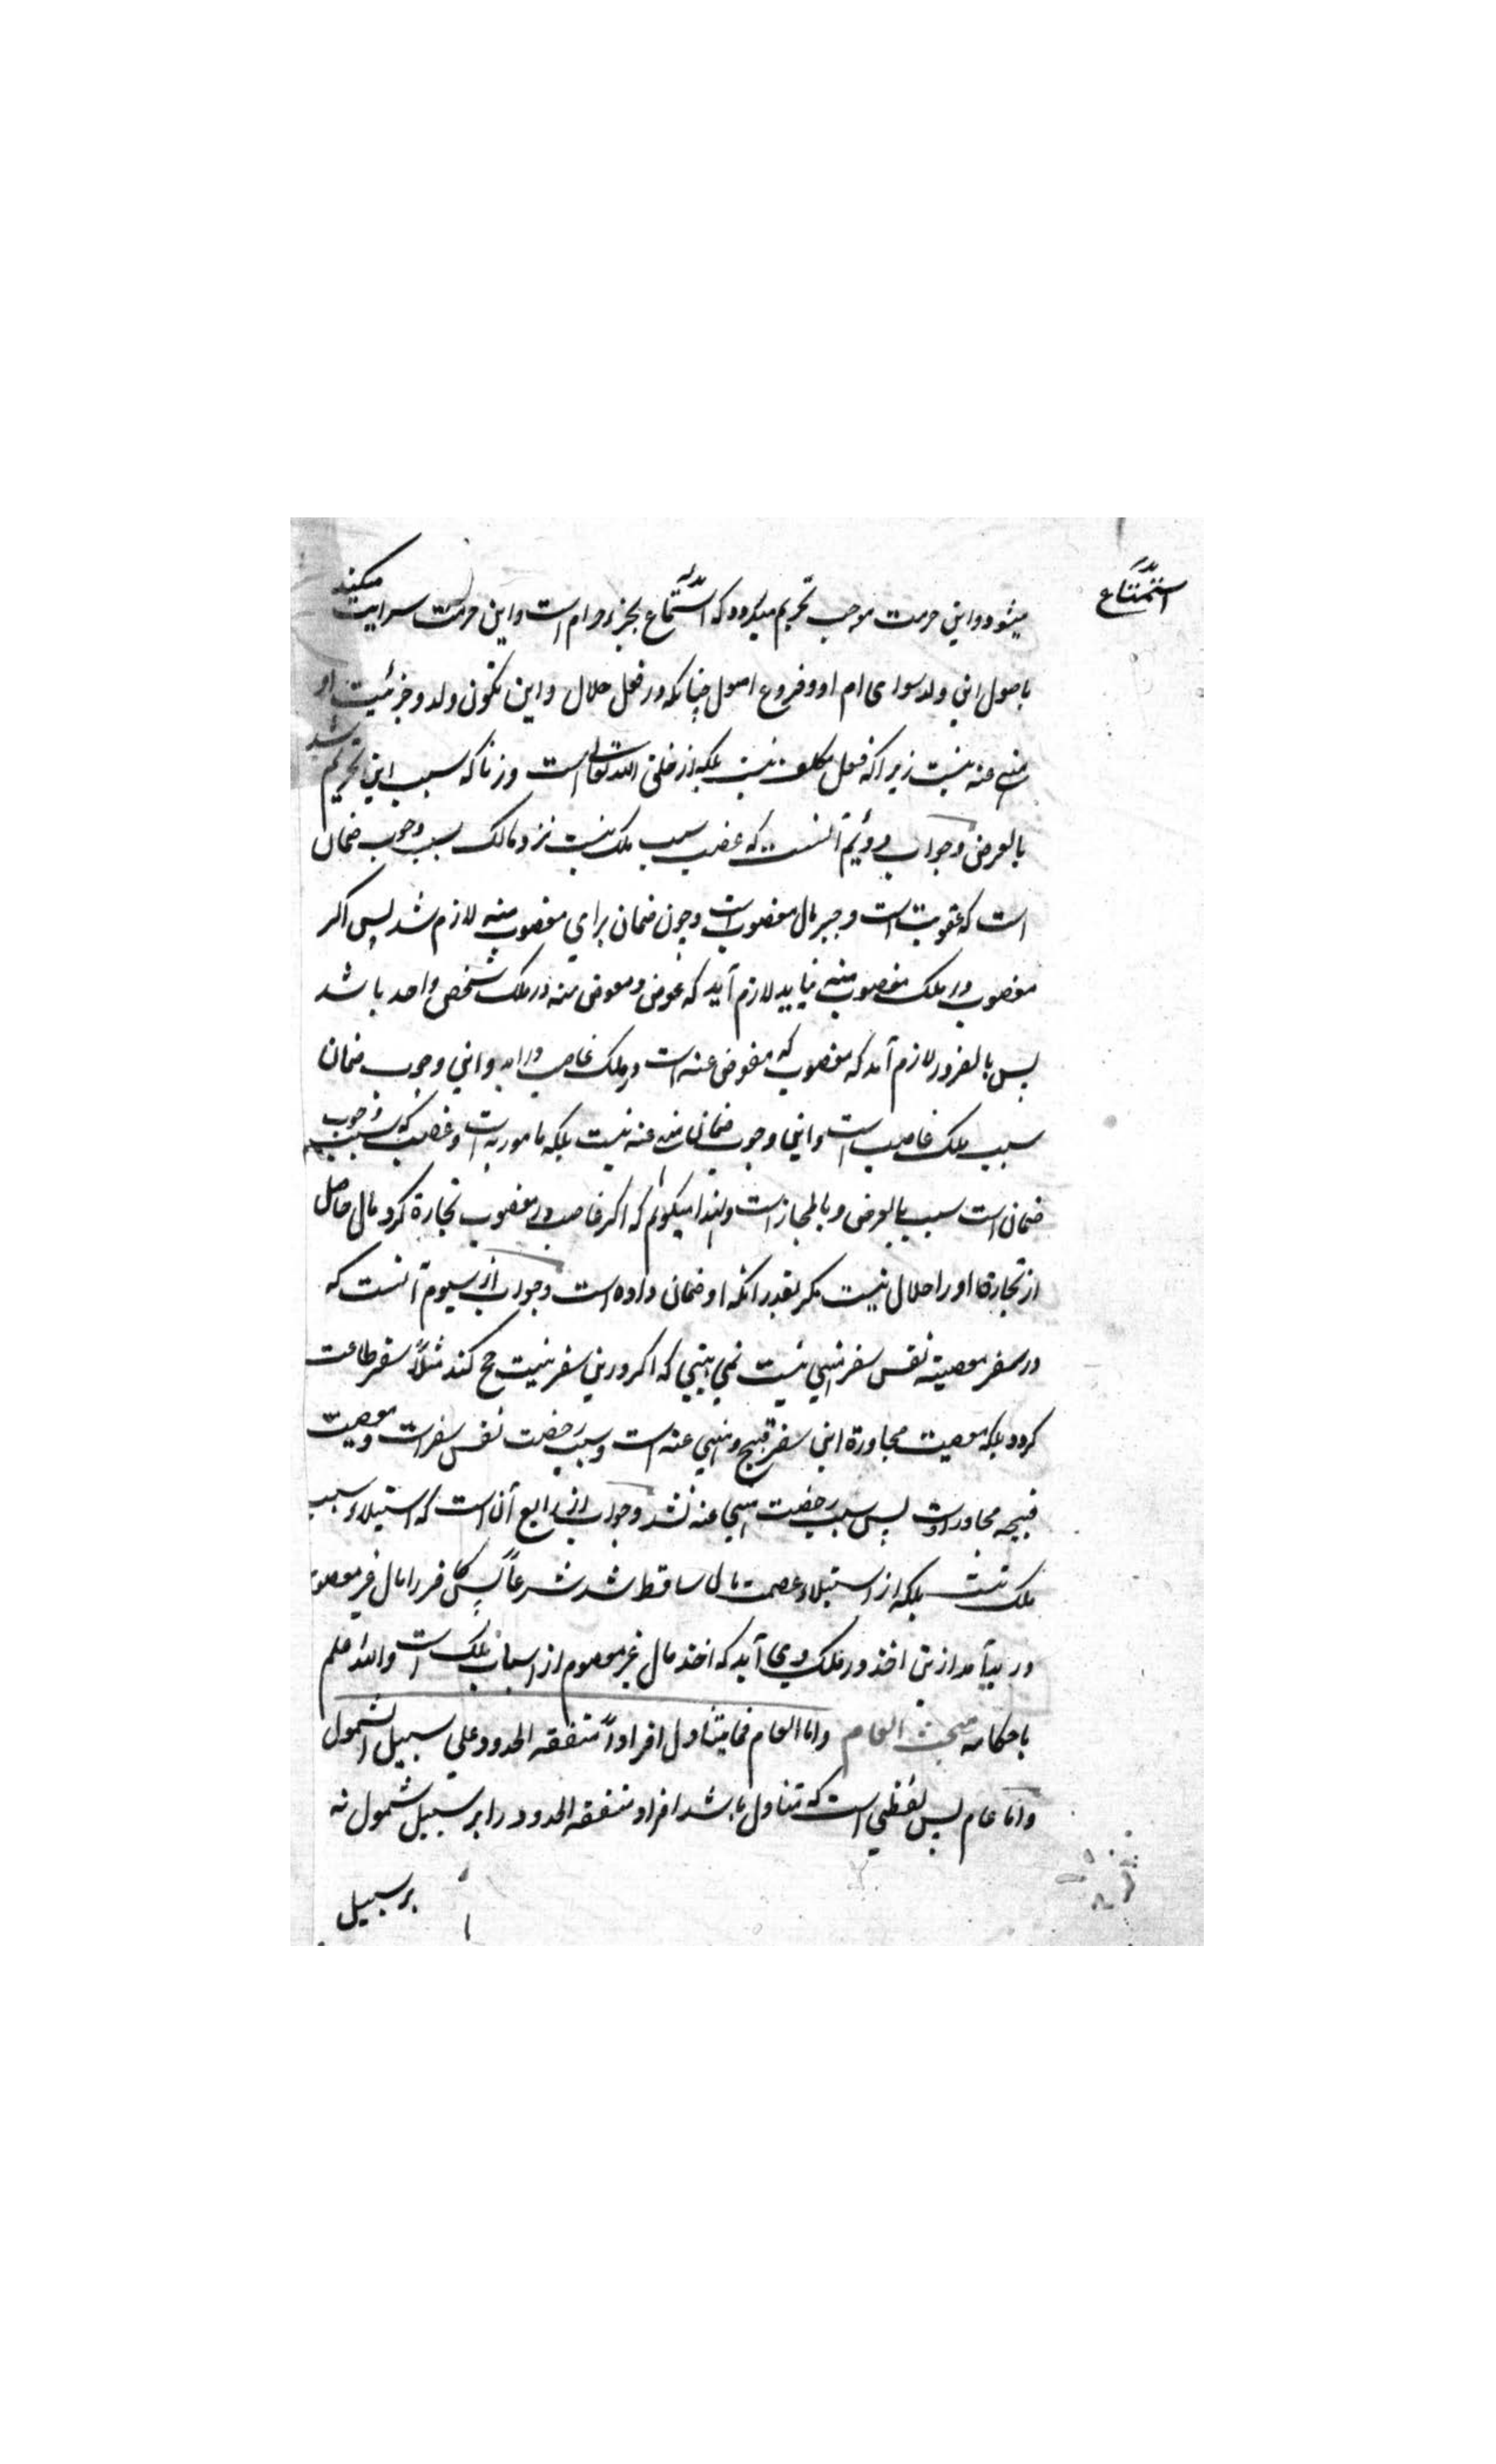 استمتاع
میشود و این حرمت موجب تحریم میگردد که استمتاع بجزء حرام است و این حرمت سرایت میکند
باصول این ولد سوای ام او و فروع اصول چنانکه در فعل حلال و این تکون ولد و جزئیت او
منهی عنه نیست زیراکه فعل مکلف نیست بلکه از خلق الله تعالی است و زنا که سبب این تحریم شد
بالعرض و جواب دوئیم آنست که غصب سبب ملک نیست نزد مالک سبب وجوب ضمان
است که عقوبت است و جبر مال مغصوب است و چون ضمان برای مغصوب منه لازم شد پس اگر
مغصوب در ملک مغصوب منه نیاید لازم آید که عوض و معوض منه در ملک شخص واحد باشد
پس بالضرور لازم آمد که مغصوب که معوض عنه است در ملک غاصب دراید و این وجوب ضمان
سبب ملک غاصب است و این وجوب ضمان منهی عنه نیست بلکه مامور به است و غصب که سبب وجوب
ضمان است سبب بالعرض و بالمجاز است و لهذا میگوئیم که اگر غاصب در مغصوب تجارة کرد مال حاصل
از تجارة او را حلال نیست مگر بقدر انکه او ضمان داده است و جواب از سیوم آنست که
در سفر معصیة نفس سفر منهی نیست نمی بینی که اگر درین سفر نیت حج کند مثلاً سفر طاعت
گردد بلکه معصیت مجاورة این سفر قبیح و منهی عنه است و سبب رخصت نفس سفر است و معصیت
قبیحه مجاور اوست پس سبب رخصت منهی عنه نشد و جواب از رابع آن است که استیلاء سبب
ملک نیست بلکه از استیلاء عصمت مال ساقط شد شرعاً پس کافر را مال غیر معصوم
در ید آمد ازین اخذ در ملک وی آید که اخذ مال غیر معصوم از اسباب ملک است والله اعلم
باحکامه مبحث العام واما العام فمایتناول افراداً متفقه الحدود علي سبیل الشمول
واما عام پس لفظی است که تناول باشد افراد متفقه الحدود را بر سبیل شمول نه
بر سبیل